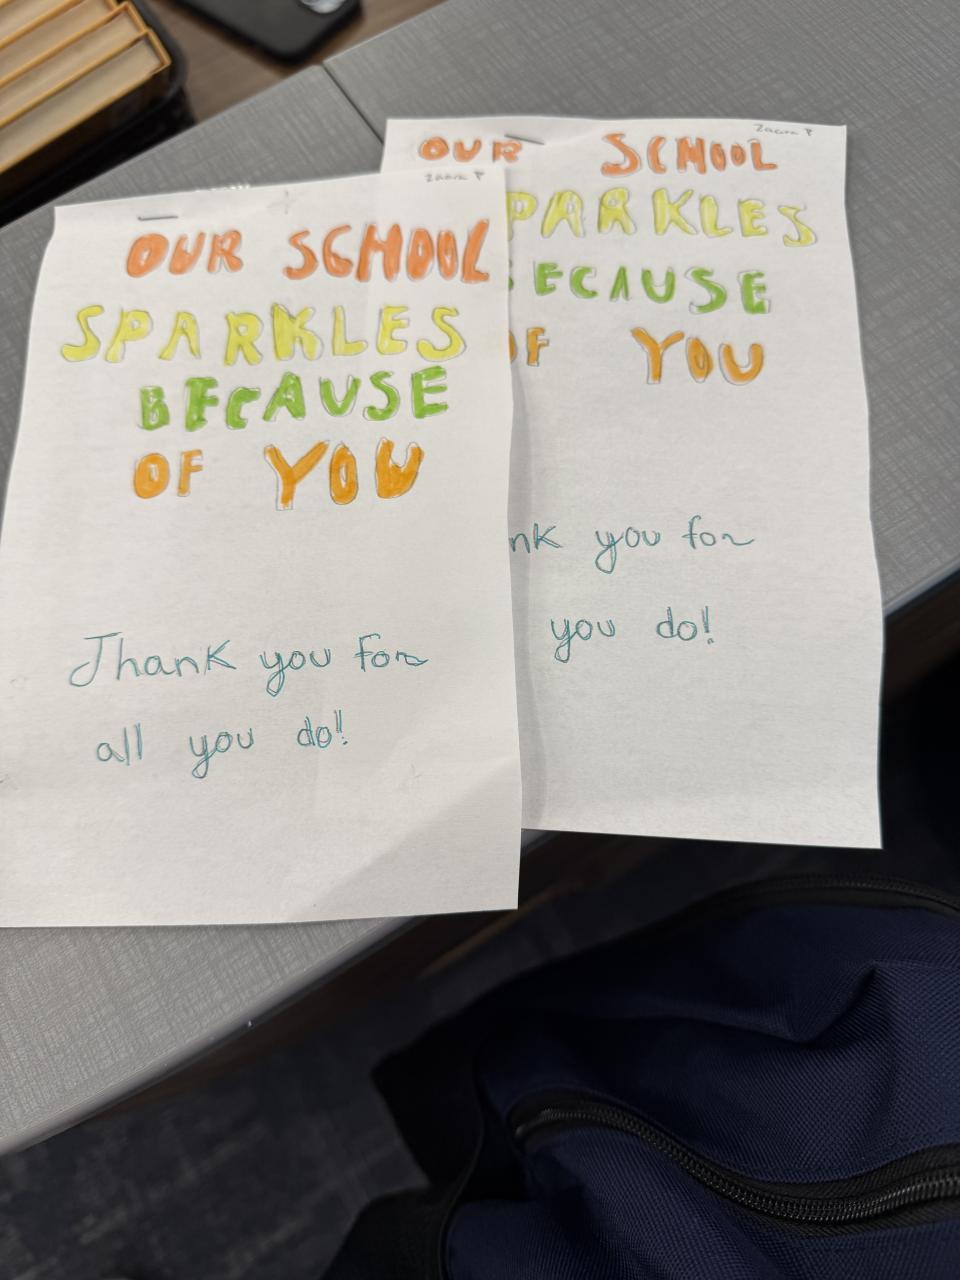 Zaara P
OUR SCHOOL
SPARKLES
BECAUSE
OF YOU
Thank you for
all you do!
Zaara P
OUR SCHOOL
PARKLES
ECAUSE
OF YOU
nk you for
you do!